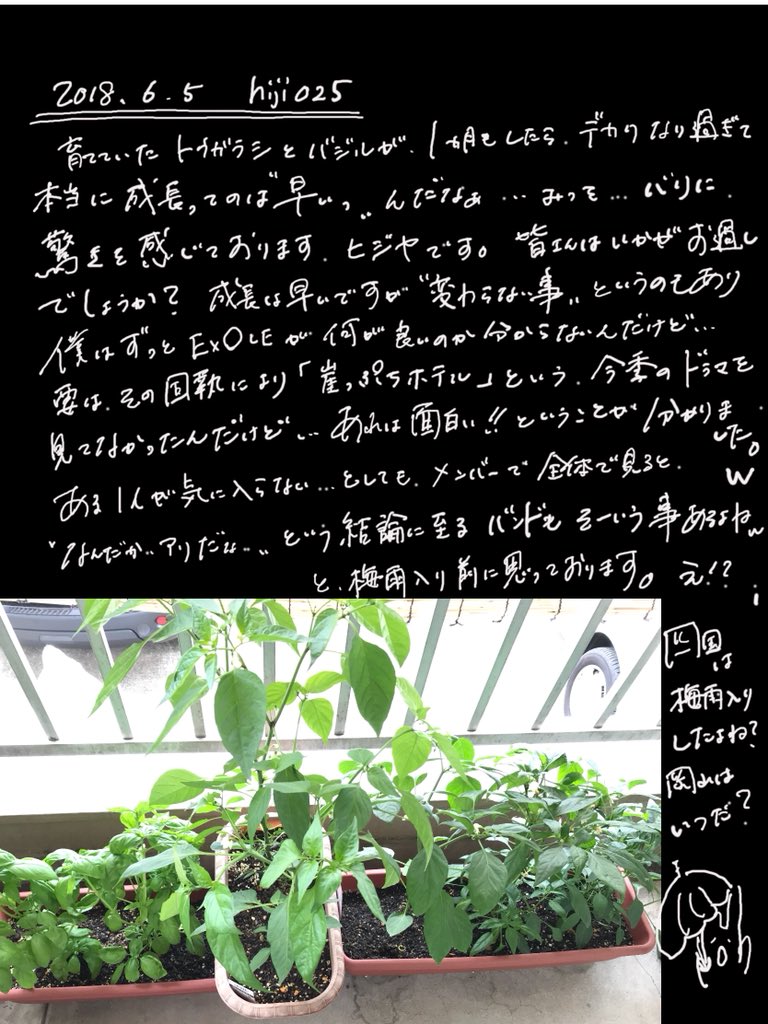 2018.6.5 hiji025
育てていたトウガラシとバジルが、1ヵ月もしたら、デカくなり過ぎて
本当に成長ってのは"早いっ"んだなぁ…みっそ…バリに、
驚きを感じております、ヒジヤです。皆さんはいかがお過し
でしょうか? 成長は早いですが"変わらない事"というのもあり
僕はずっとEXOLEが何が良いのか分からないんだけど…
要は、その固執により「崖っぷちホテル」という、今季のドラマを
見てなかったんだけど…あれは面白い!!ということが分かりました。w
ある1人が気に入らない…としても、メンバーで全体で見ると、
"なんだか、アリだな…"という結論に至るバンドもそーいう事あるよねw
と、梅雨入り前に思っております。え!?
四国は
梅雨入り
したよね?
岡山は
いつだ?